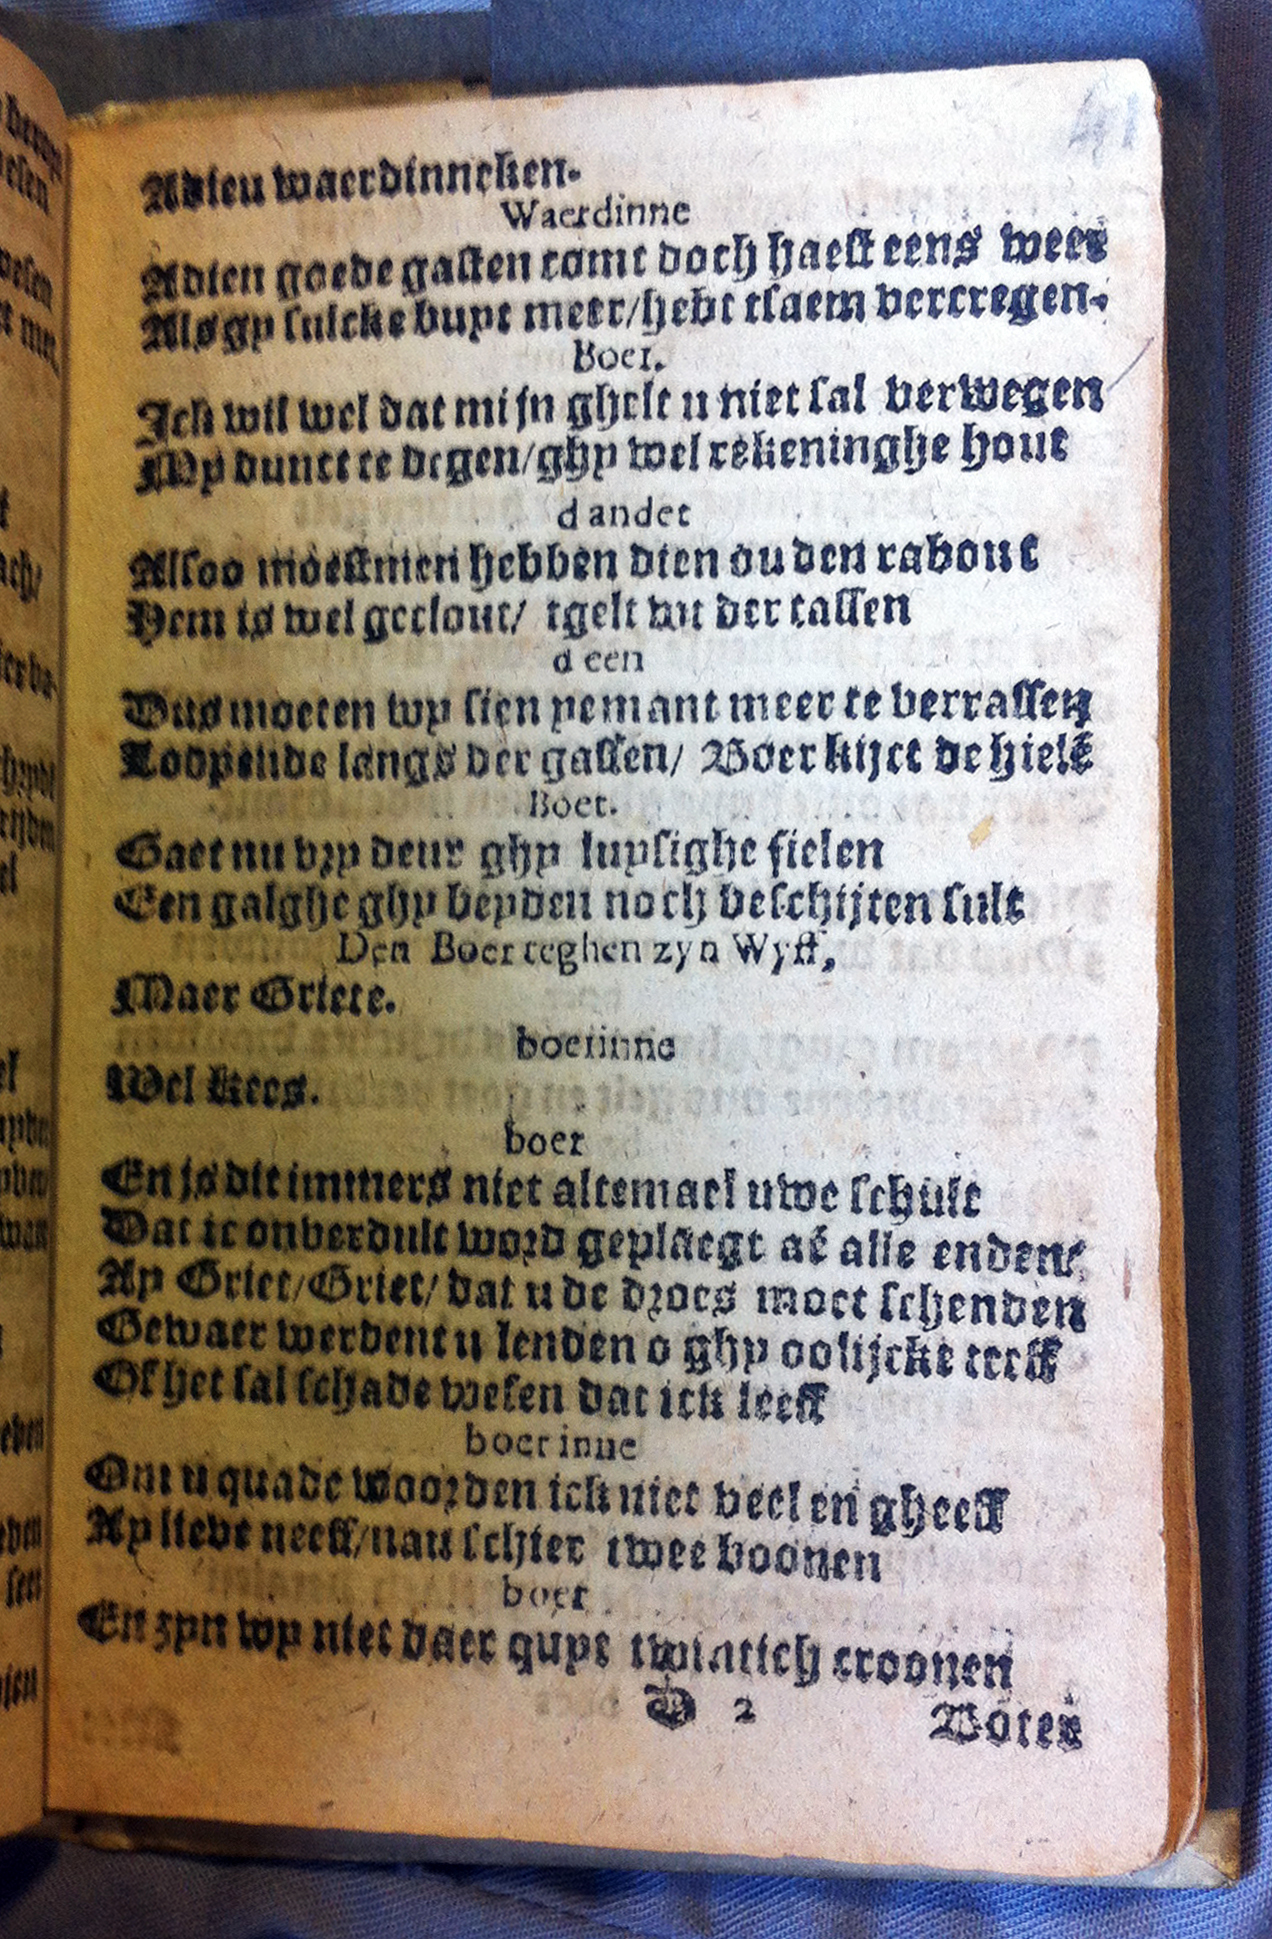 41
Adieu waerdinneken.
Waerdinne
Adieu goede gasten comt doch haest eens weer
Als gy sulcke buyt meer/hebt tsaem vercregen.
Boer.
Ick wil wel dat mijn ghelt u niet sal verwegen
My dunct te degen/ghy wel rekeninghe hout
dander
Alsoo moestmen hebben dien ouden rabout
Hem is wel geclout/ tgelt uut der tassen
deen
Dus moeten wy sien yemant meer te verrassen
Loopende langs der gassen/ Boer kijct de hielē
Boer.
Gaet nu vry deur ghy luysighe fielen
Een galghe ghy beyden noch beschijten sult
Den Boer teghen zyn Wyff,
Maer Griete.
boerinne
Wel kees.
boer
En is dit immers niet altemael uwe schult
Dat ic onverdult word geplaegt aē alle enden
Ay Griet/Griet/ dat u de droes moet schenden
Gewaer werdent u lenden o ghy oolijcke teeff
Of het sal schade wesen dat ick leeff
boerinne
Om u quade woorden ick niet veel en gheeff
Ay lieve neeff/nau schier twee boonen
boer
En zyn wy niet daer quyt twintich croonen
D 2
Boter